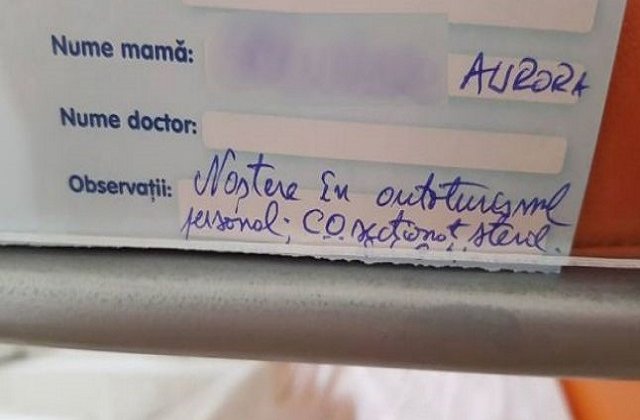 Nume mamă: AURORA
Nume doctor:
Observații: Naștere în autoturismul
personal; C.O. secționat steril.